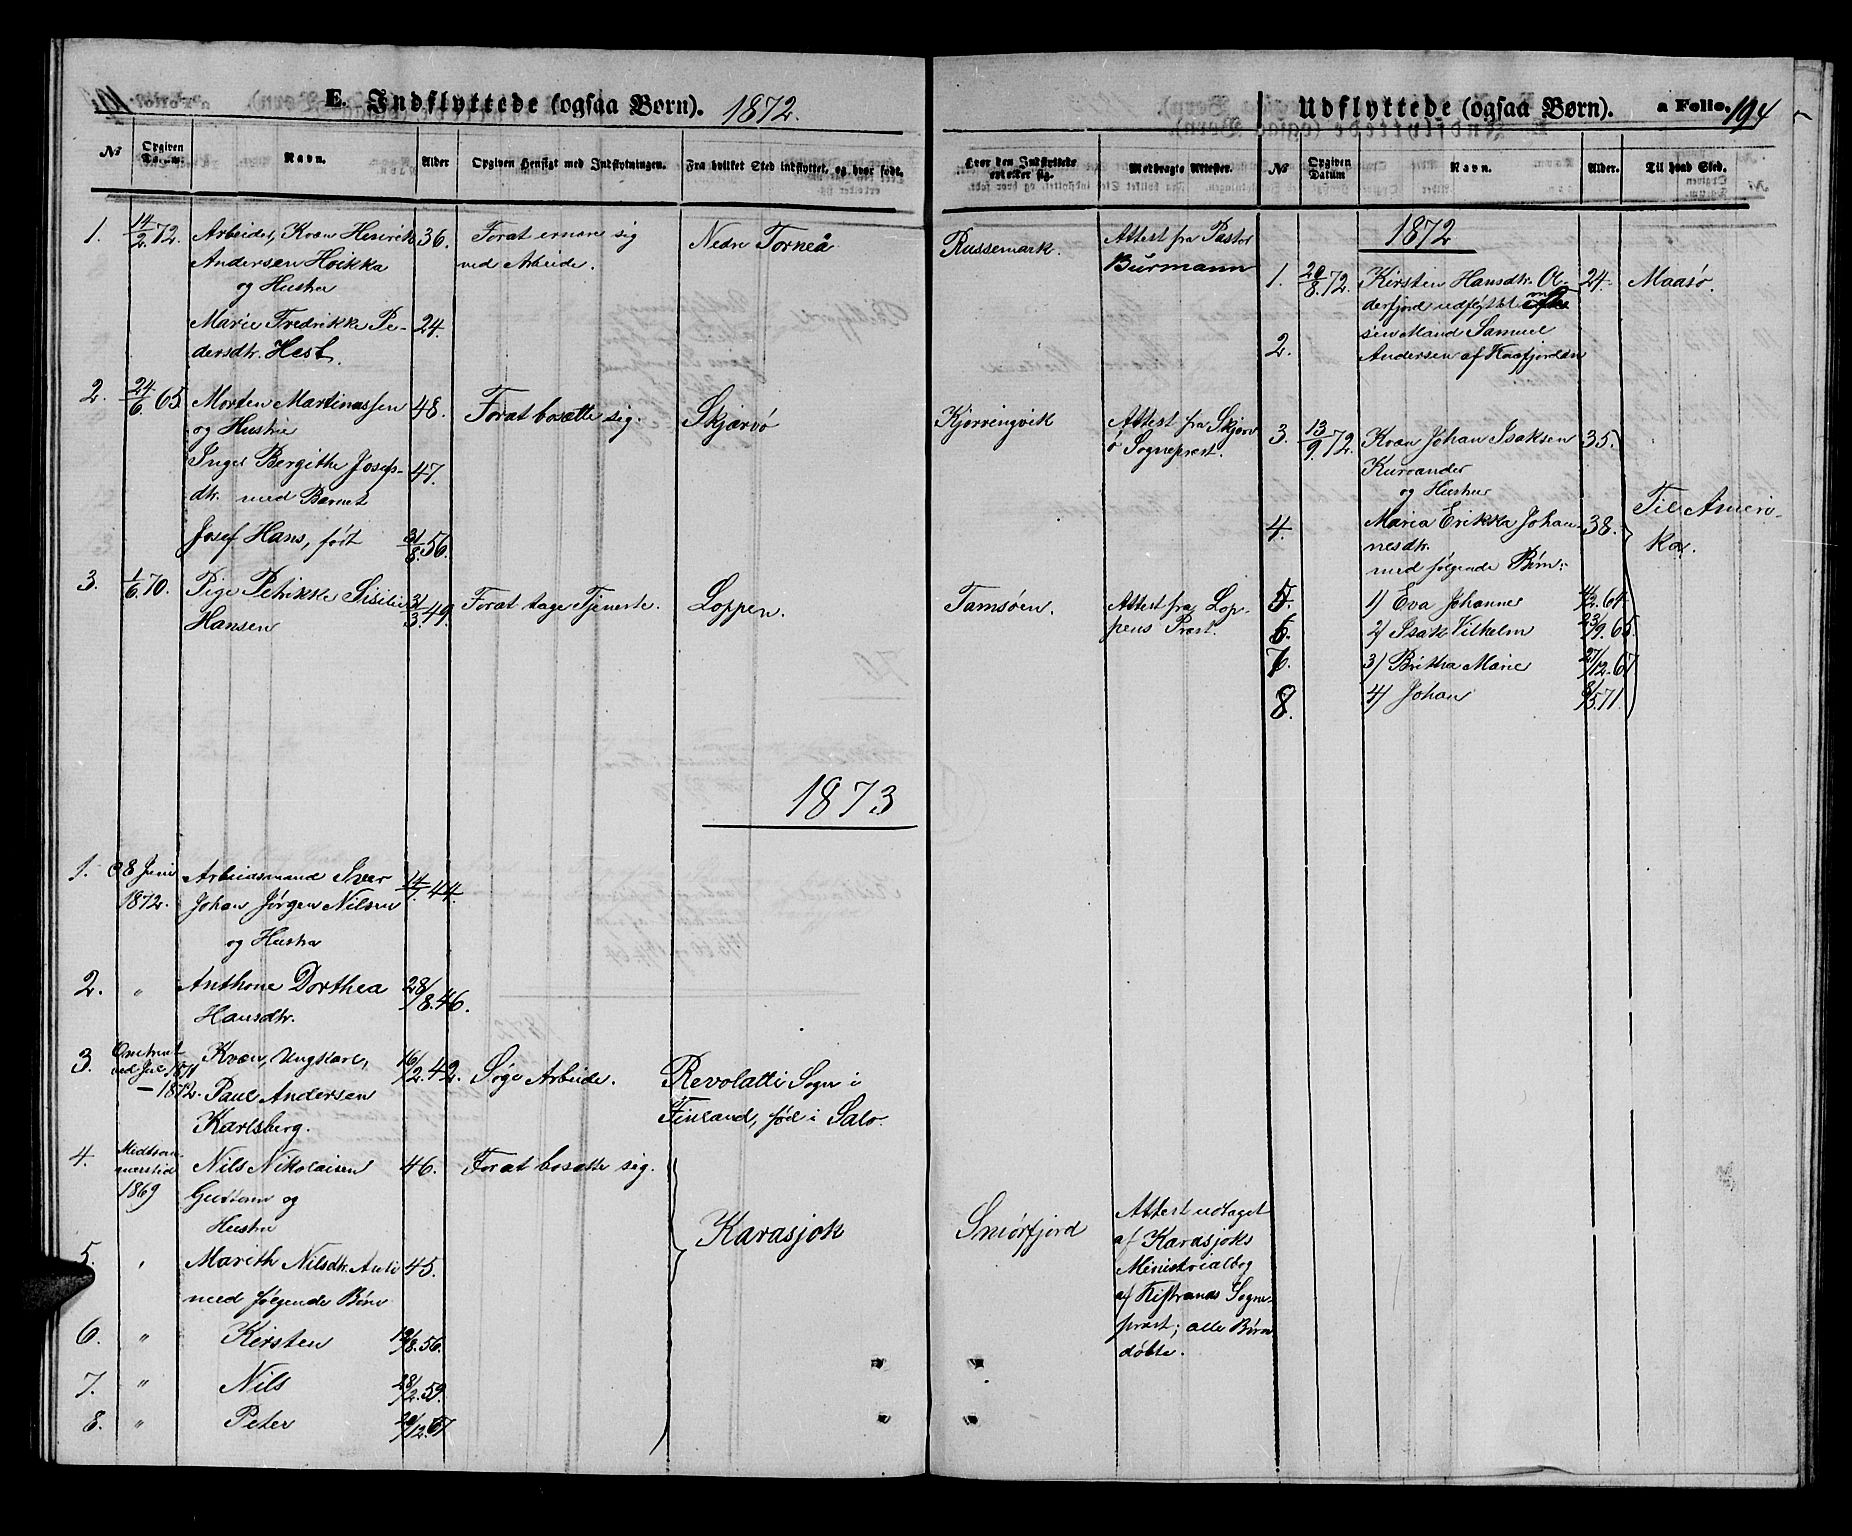 E. Indflyttede (ogsaa Børn). 1872.
No
Opgiven Datum.
Navn.
Alder
Opgiven Hensigt med Indflytningen.
Fra hvilket Sted indflyttet, og hvor født.
1. 14/2 72. Arbeider, Kvæn Henrik 36. Forat ernære sig Nedre Torneå
Andersen Hoikka ved Arbeide.
og Hustru
Marie Fredrikke Pe- 24.
dersdtr. Hest.
2. 24/6 65 Morten Martinussen 48. Forat bosætte sig. Skjærvø
og Hustru
Inger Bergithe Josefs- 47.
dtr. med Barnet
Josef Hans, født 31/8 56.
3. 1/6 70. Pige Petrikke Sisilie 31/3 49. Forat tage Tjeneste. Loppen.
Hansen
1873
1. 8 Juni Arbeidsmand Iver 14/7 44.
1872. Johan Jørgen Nilsen
og Hustru
2. " Anthone Dorthea 28/8. 46.
Hansdtr.
3. Omtrent Kvæn, Ungkarl, 16/2. 42. Søge Arbeide. Revolatti Sogn i
ved Jul 1871
– 1872. Paul Andersen Finland, fød i Salo.
Karlsberg.
4. Midtsom- Nils Nikolaisen 46. Forat bosætte sig.
merstid
1869 og
Hustru Karasjok
5. " Mareth Nilsdtr. Anti 45.
med følgende Børn
6. " Kirsten 8. 56.
7. " Nils 28/2. 59.
8. " Peter 12. 67
Udflyttede (ogsaa Børn). a Folio. 194
Hvor den Indflyttede opholder sig.
Medbragte Attester.
No
Opgiven Datum
Navn.
Alder.
Til hvad Sted.
Russemark. Attest fra Pastor
Burmann
Kjørringvik Attest fra Skjerv
ø Sognepræst.
Tamsøen. Attest fra Lop-
pens Præst.
Smørfjord Attest udtaget
af Karasjoks
Ministrialbog
af Kistrands Sogne-
præst; alle Børn
døbte.
1872
1. 20/8. 72. Kirsten Hansdtr. Ol- 24. Maasø.
derfjord udflyttet med
2. sin Mand Samuel
Andersen af Kaafjorden
3. 13/9. 72. Kvæn Johan Isaksen 35.
Kuroander
og Hustru Til Ameri-
4. Maria Erikka Johan- 38. ka.
nesdtr.
med følgende Børn:
5. 1) Eva Johanne 2. 64
6. 2) Isak Vilhelm 23/9. 65.
7. 3) Britha Marie 27/12. 67
8. 4) Johan 5. 71